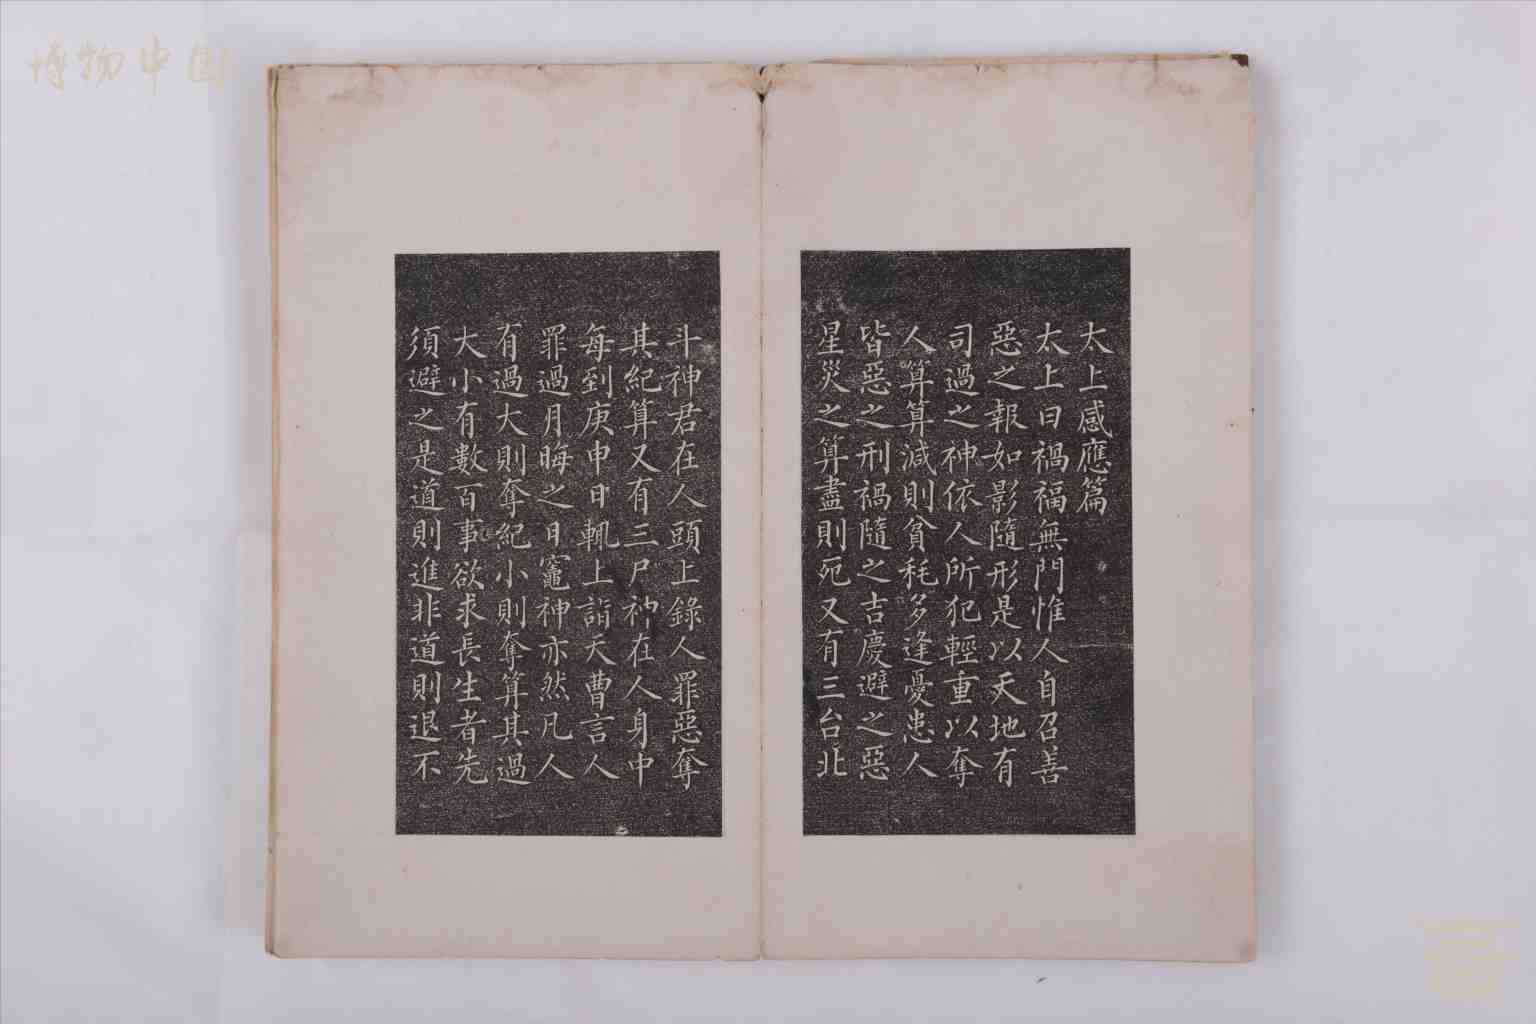 太上感應篇
太上曰禍福無門惟人自召善
惡之報如影隨形是以天地有
司過之神依人所犯輕重以奪
人算算減則貧耗多逢憂患人
皆惡之刑禍隨之吉慶避之惡
星災之算盡則死又有三台北
斗神君在人頭上錄人罪惡奪
其紀算又有三尸神在人身中
每到庚申日輒上詣天曹言人
罪過月晦之日竈神亦然凡人
有過大則奪紀小則奪算其過
大小有數百事欲求長生者先
須避之是道則進非道則退不
博物中国